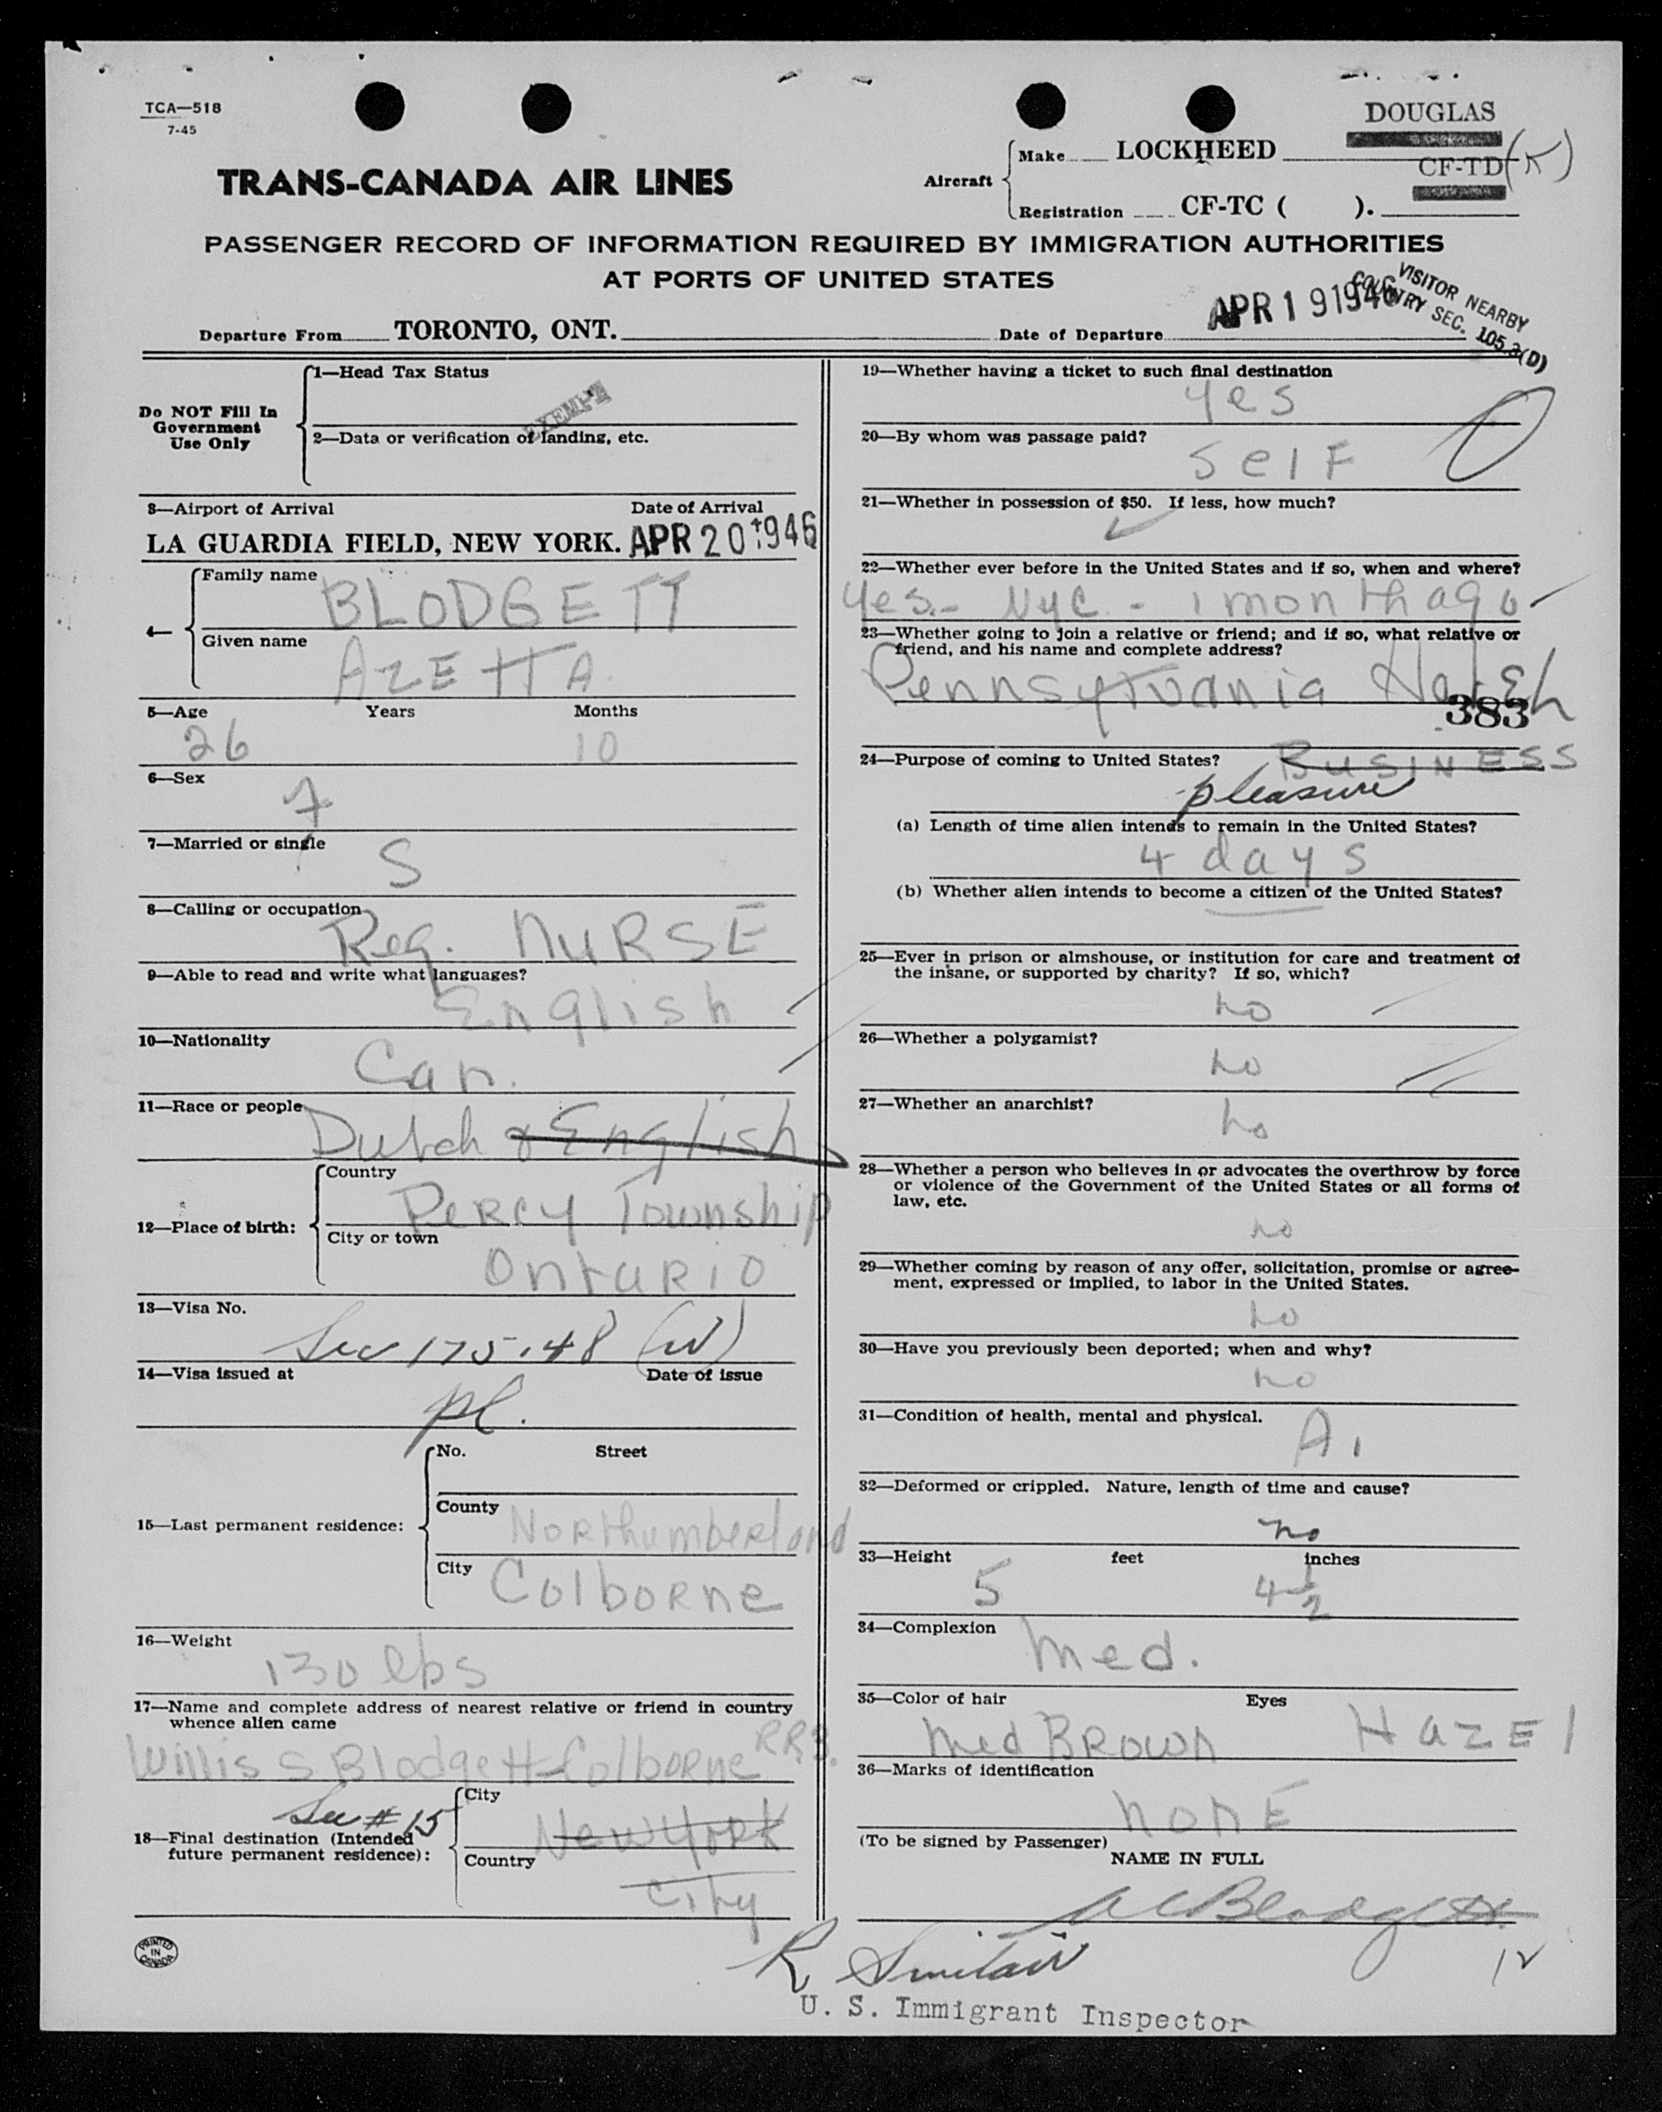 TCA—518
7-45
DOUGLAS
Make LOCKHEED
CF-TD (K)
TRANS-CANADA AIR LINES
Aircraft
Registration CF-TC ( ).
PASSENGER RECORD OF INFORMATION REQUIRED BY IMMIGRATION AUTHORITIES
AT PORTS OF UNITED STATES
VISITOR NEARBY
COUNTRY SEC. 105.3(D)
Departure From TORONTO, ONT. Date of Departure APR 19 1946
Do NOT Fill In
Government
Use Only
1—Head Tax Status
EXEMPT
2—Data or verification of landing, etc.
3—Airport of Arrival Date of Arrival
LA GUARDIA FIELD, NEW YORK. APR 20 1946
4—
Family name BLODGETT
Given name AZETTA
5—Age Years Months
26 10
6—Sex
F
7—Married or single
S
8—Calling or occupation
Reg. NURSE
9—Able to read and write what languages?
English
10—Nationality
Can.
11—Race or people
Dutch & English
12—Place of birth:
Country
Percy Township
City or town
Ontario
13—Visa No.
Sec 175.48 (W)
14—Visa issued at Date of issue
pl.
15—Last permanent residence:
No. Street
County
Northumberland
City
Colborne
16—Weight
130 lbs
17—Name and complete address of nearest relative or friend in country
whence alien came
Willis S Blodgett Colborne RR3.
See #15
18—Final destination (Intended
future permanent residence):
City
New York
Country
City
PRINTED
IN
CANADA
19—Whether having a ticket to such final destination
yes
20—By whom was passage paid?
Self
21—Whether in possession of $50. If less, how much?
22—Whether ever before in the United States and if so, when and where?
Yes.- NYC. - 1 month ago
23—Whether going to join a relative or friend; and if so, what relative or
friend, and his name and complete address?
Pennsylvania Hotel
383
24—Purpose of coming to United States? BUSINESS
pleasure
(a) Length of time alien intends to remain in the United States?
4 days
(b) Whether alien intends to become a citizen of the United States?
25—Ever in prison or almshouse, or institution for care and treatment of
the insane, or supported by charity? If so, which?
no
26—Whether a polygamist?
no
27—Whether an anarchist?
no
28—Whether a person who believes in or advocates the overthrow by force
or violence of the Government of the United States or all forms of
law, etc.
no
29—Whether coming by reason of any offer, solicitation, promise or agree-
ment, expressed or implied, to labor in the United States.
no
30—Have you previously been deported; when and why?
no
31—Condition of health, mental and physical.
A1
32—Deformed or crippled. Nature, length of time and cause?
no
33—Height feet inches
5 4 1/2
34—Complexion
Med.
35—Color of hair Eyes
Med BROWN HAZEl
36—Marks of identification
NONE
(To be signed by Passenger)
NAME IN FULL
A C Blodgett
R Sinclair
12
U. S. Immigrant Inspector